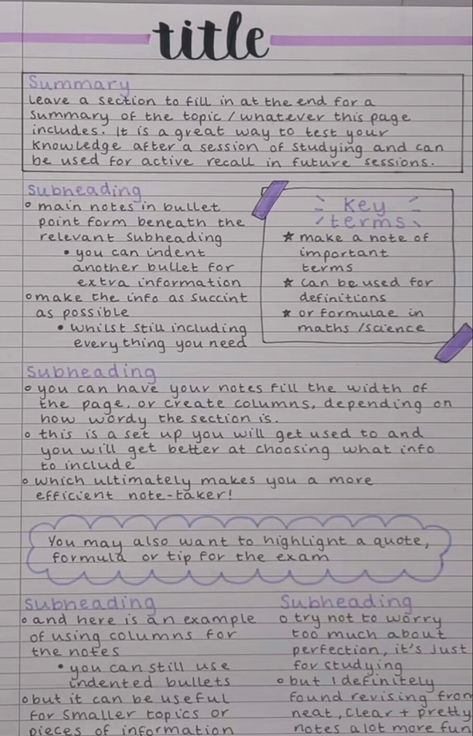 title
Summary
Leave a section to fill in at the end for a
summary of the topic / whatever this page
includes. It is a great way to test your
knowledge after a session of studying and can
be used for active recall in future sessions.
Subheading
◦ main notes in bullet
point form beneath the
relevant subheading
• you can indent
another bullet for
extra information
◦ make the info as succint
as possible
• whilst still including
everything you need
Key
terms
★ make a note of
important
terms
★ can be used for
definitions
★ or formulae in
maths / science
Subheading
◦ you can have your notes fill the width of
the page, or create columns, depending on
how wordy the section is.
◦ this is a set up you will get used to and
you will get better at choosing what info
to include
◦ which ultimately makes you a more
efficient note-taker!
You may also want to highlight a quote,
formula or tip for the exam
Subheading
◦ and here is an example
of using columns for
the notes
• you can still use
indented bullets
◦ but it can be useful
for smaller topics or
pieces of information
Subheading
◦ try not to worry
too much about
perfection, it's just
for studying
◦ but I definitely
found revising from
neat, clear + pretty
notes alot more fun